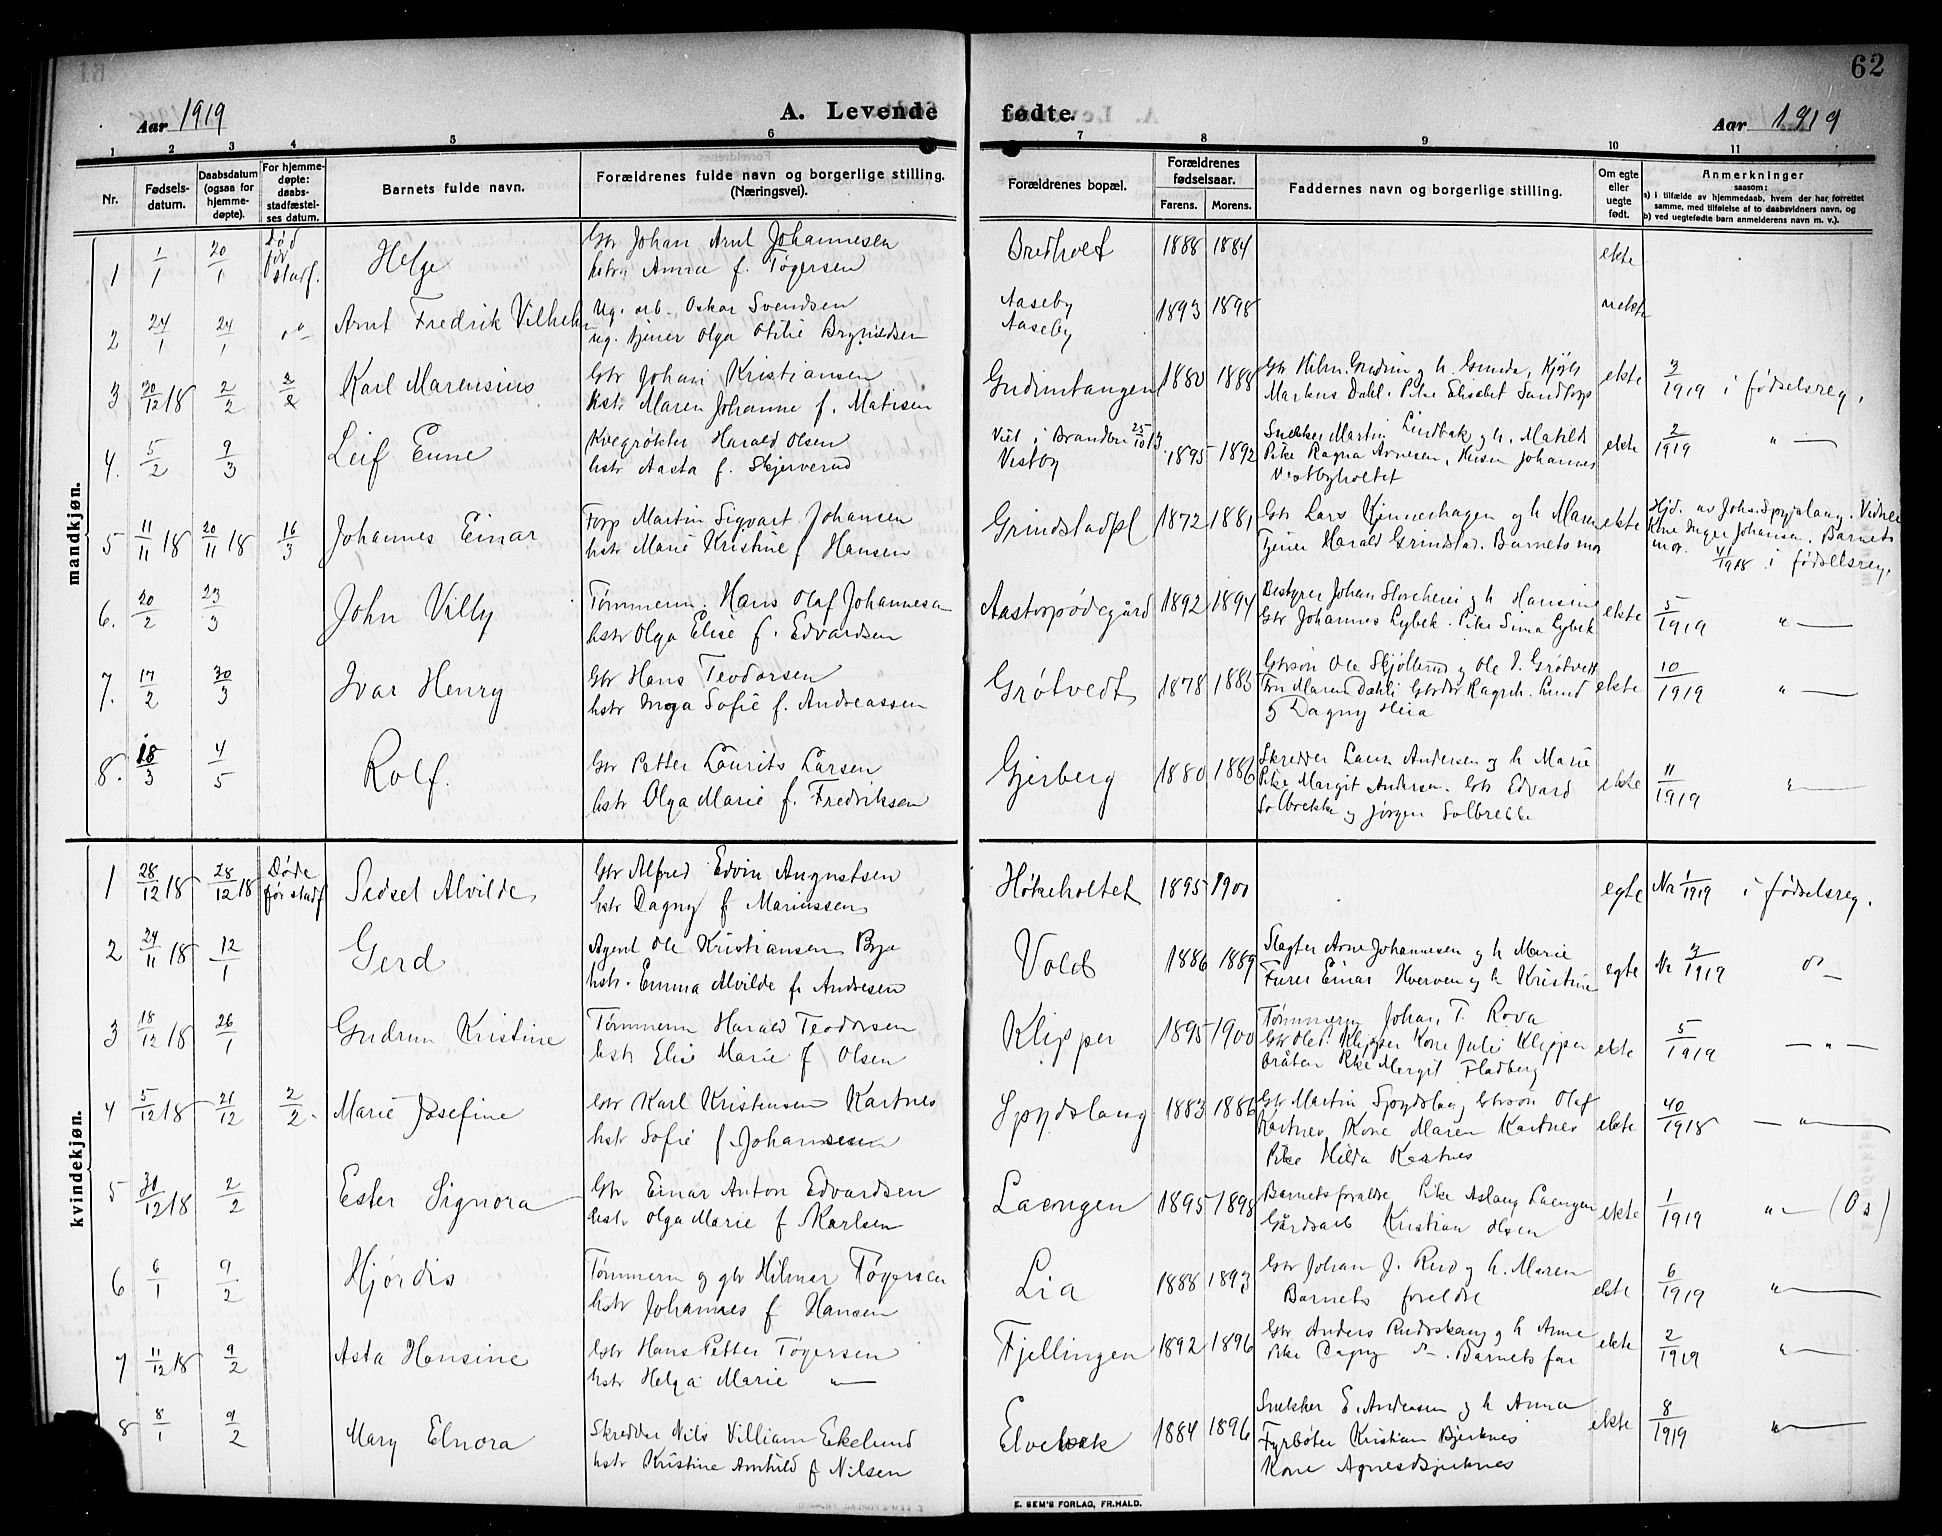 62
Aar 1919
A. Levende fødte.
Aar 1919
1 2 3 4 5 6 7 8 9 10 11
Nr.
Fødsels-
datum.
Daabsdatum
(ogsaa for
hjemme-
døpte).
For hjemme-
døpte:
daabs-
stadfæstel-
ses datum.
Barnets fulde navn.
Forældrenes fulde navn og borgerlige stilling.
(Næringsvei).
Forældrenes bopæl.
Forældrenes
fødselsaar.
Farens. Morens.
Faddernes navn og borgerlige stilling.
Om egte
eller
uegte
født.
Anmerkninger
saasom:
a) i tilfælde av hjemmedaab, hvem der har forrettet
samme, med tilføielse af to daabsvidners navn, og
b) ved uegtefødte barn anmelderens navn m. v.).
mandkjøn.
1 1/1 20/1 Død før stadf. Helge
Gbr Johan Arnt Johannesen
hstru Anna f. Tøgersen
Bredholt 1888 1884 ekte
2 24/1 24/1 Arnt Fredrik Vilhelm
Ug. arb. Oskar Svendsen
ug. tjener Olga Otilie Brynildsen
Aaseby
Aaseby
1893 1898 uekte
3 30/12 18 2/2 2/2 Karl Marensius
Gbr Johan Kristiansen
hstr Maren Johanne f. Matisen
Gudimtangen 1880 1888
Markus Dahl. Pike Elisabet Sandtorp
ekte 3/1919 i fødselsreg.
4. 5/2 9/3 Leif Enne
Kvegrøkter Harald Olsen
hstr Aasta f. Skjerverud
Viet i Branbu 25/10 13.
Vestby
1895 1892
Snekker Martin Lindbak og h. Matild
Pike Ragna Arnesen, Husm Johannes
Vestbyholtet
ekte 2/1919 " —
5 11/11 18 20/11 18 16/3 Johannes Einar
Forp Martin Sigvart Johansen
hstr Marie Kristine f Hansen
Grindstadpl 1872 1881
Gbr Lars Kinnerhagen og h Maren
Tjener Harald Grindstad. Barnets mor
ekte
Hjd. av Johs. Spydslaug. Vidner
Kone Inger Johansen, Barnets
mor. 41/1918 i fødselsreg.
6. 20/2 23/3 John Villy
Tømmerm. Hans Olaf Johannesen
hstr Olga Elise f. Edvardsen
Aastorpødegård 1892 1894
Gbr Johannes Lybek. Pike Sina Lybek
ekte 5/1919 " —
7. 17/2 30/3 Ivar Henry
Gbr Hans Teodorsen
hstr Inga Sofie f. Andreassen
Grøtvedt 1878 1883
5 Dagny Heia
ekte 10/1919 " —
8. 18/3 4/5 Rolf.
Gbr Petter Laurits Larsen
hstr Olga Marie f. Fredriksen
Gjerberg 1880 1886
Skredder Laur. Andersen og h Marie
Pike Margit Andersen. Gbr Edvard
Solbrekke og Jørgen Solbrekke
ekte 11/1919 " —
kvindekjøn.
1 28/12 18 28/12 18 Døde før stadf Sidsel Alvilde
Gbr Alfred Edvin Augustsen
hstr Dagny f Mariussen
Høkeholtet 1895 1900 egte Nr 1/1919 i fødselsreg.
2 24/11 18 12/1 Gerd
Agent Ole Kristiansen Bye
hstr. Emma Alvilde f. Andresen
Vold 1886 1889
Slagter Arne Johannesen og h Marie
Furer Einar Hverven og h Kristine
egte Nr 3/1919
3 18/12 18 26/1 Gudrun Kristine
Tømmerm Harald Teodorsen
hstr Elise Marie f Olsen
Klipper 1895 1900
Tømmerm Johan. T. Rova
Gbr Olet. Klipper Kone Juli Klipper
bråten Pike Margit Fladberg
ekte 5/1919 — " —
4 5/12 18 21/12 2/2 Marie Josefine
Gbr Karl Kristensen Kartnes
hstr Sofie f Johansen
Spydslaug 1883 1886
Gbr Martin Spydslaug Gbrsøn Olaf
Kartnes Kone Maren Kartnes
Pike Hilda Kartnes
ekte 40/1918 — " —
5 30/12 18 2/2 Ester Signora
Gbr Einar Anton Edvardsen
hstr Olga Marie f Karlsen
Laengen 1895 1898
Barnets foraldre Pike Aslaug Laengen
Gårdsarb Kristian Olsen
ekte 1/1919 " — (Os)
6 6/1 9/2 Hjørdis
Tømmerm og gbr Hilmar Tøgersen
hstr Johannes f Hansen
Lia 1888 1893
Gbr Johan J. Rud og h. Maren
Barnets foreldre
ekte 6/1919 " —
7 11/12 18 9/2 Asta Hansine
Gbr Hans Petter Tøgersen
hstr Helga Marie " —
Fjellingen 1892 1896
Gbr Anders Rudsskaug og h Anne
Pike Dagny do —. Barnets far
ekte 2/1919 " —
8 8/1 9/2 Mary Elnora
Skredder Nils Villiam Ekelund
hstr Kristine Arnhild f Nilsen
Elvebak 1884 1896
Snekker E. Andersen og h Anna
Fyrbøter Kristian Bjerknes
Kone Agnes Bjerknes
ekte 8/1919 " —
E. SEM'S FORLAG, FR.HALD.